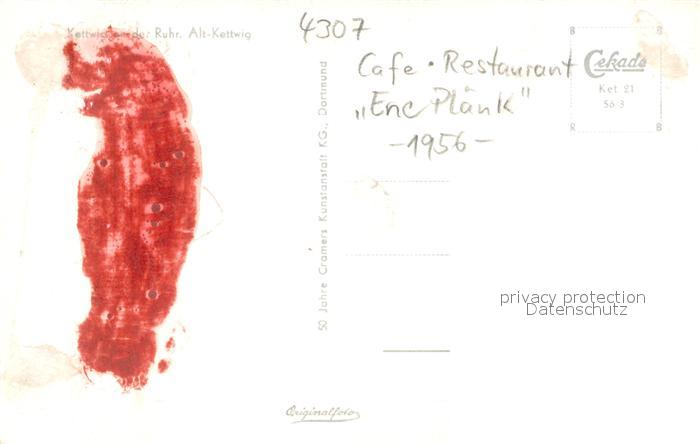 Kettwig an der Ruhr. Alt-Kettwig
4307
Cafe · Restaurant
„Enc Plänk"
-1956-
Cekade
Ket 21
56 8
50 Jahre Cramers Kunstanstalt KG., Dortmund
privacy protection
Datenschutz
Originalfoto